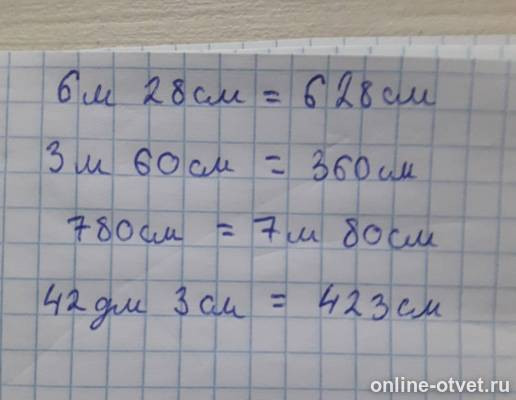 6м 28см = 628см
3м 60см = 360см
780см = 7м 80см
42дм 3см = 423см
online-otvet.ru